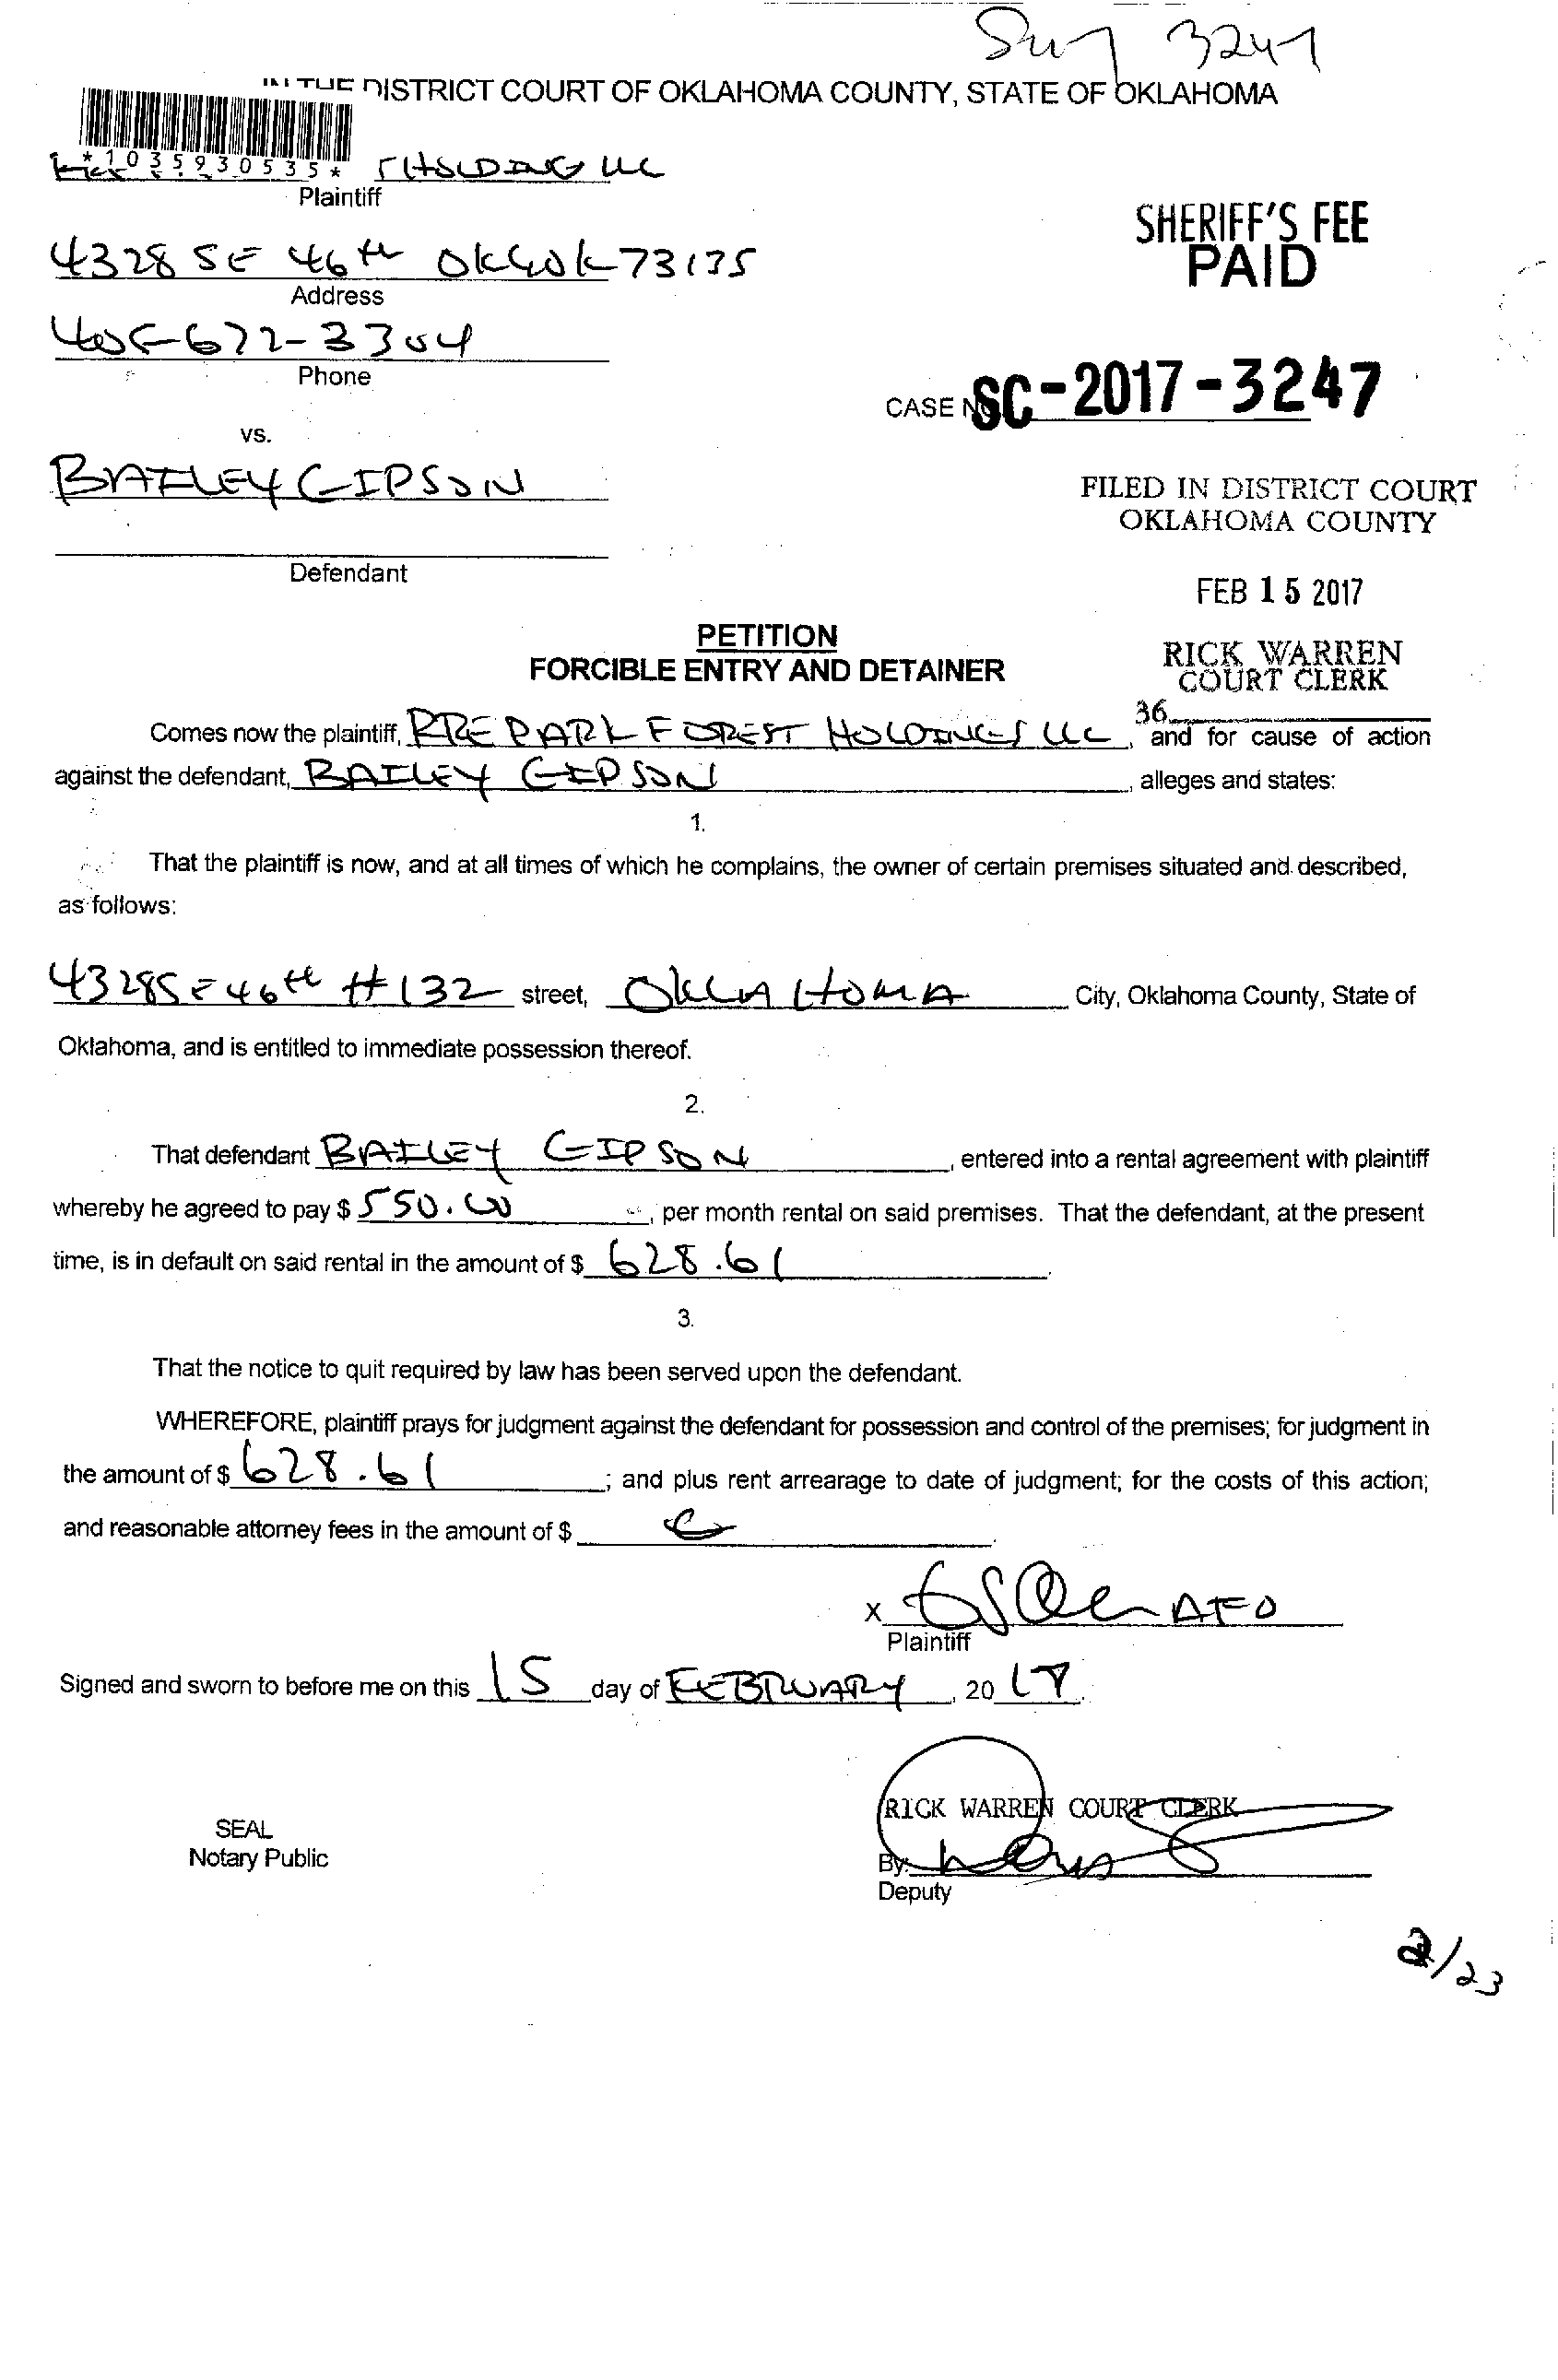 3247
IN THE DISTRICT COURT OF OKLAHOMA COUNTY, STATE OF OKLAHOMA
*1035930535* HOLDING LLC
Plaintiff
4328 SE 46th OKC OK 73135
Address
405-672-3304
Phone
SHERIFF'S FEE
PAID
CASE NO. SC-2017-3247
vs.
BAILEY GIPSON
Defendant
FILED IN DISTRICT COURT
OKLAHOMA COUNTY
FEB 15 2017
RICK WARREN
COURT CLERK
36
PETITION
FORCIBLE ENTRY AND DETAINER
Comes now the plaintiff, RRE PARK FOREST HOLDINGS LLC, and for cause of action
against the defendant, BAILEY GIPSON, alleges and states:
1.
That the plaintiff is now, and at all times of which he complains, the owner of certain premises situated and described,
as follows:
4328 SE 46th #132 street, OKLAHOMA City, Oklahoma County, State of
Oklahoma, and is entitled to immediate possession thereof.
2.
That defendant BAILEY GIPSON, entered into a rental agreement with plaintiff
whereby he agreed to pay $ 550.00, per month rental on said premises. That the defendant, at the present
time, is in default on said rental in the amount of $ 628.61.
3.
That the notice to quit required by law has been served upon the defendant.
WHEREFORE, plaintiff prays for judgment against the defendant for possession and control of the premises; for judgment in
the amount of $ 628.61; and plus rent arrearage to date of judgment; for the costs of this action;
and reasonable attorney fees in the amount of $
X
Plaintiff
Signed and sworn to before me on this 15 day of FEBRUARY, 2017.
RICK WARREN COURT CLERK
SEAL
Notary Public
By:
Deputy
2/23